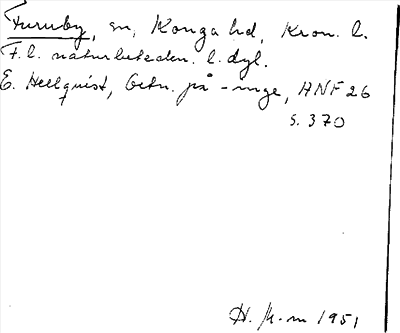 Furuby, sn, Konga hd, Kron. l.
F.l. naturbeteckn. l. dyl.
E. Hellquist, Ortn. på -inge, ANF 26
s. 370
H. K-m 1951